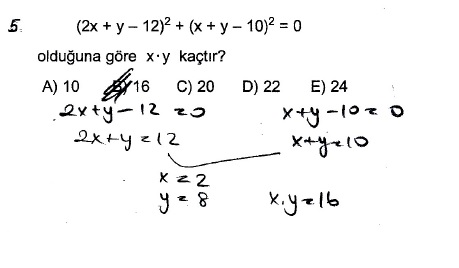 5. (2x + y – 12)² + (x + y – 10)² = 0
olduğuna göre x·y kaçtır?
A) 10 B) 16 C) 20 D) 22 E) 24
2x+y-12 =0 x+y-10= 0
2x+y=12 x+y=10
x = 2
y = 8 x.y=16